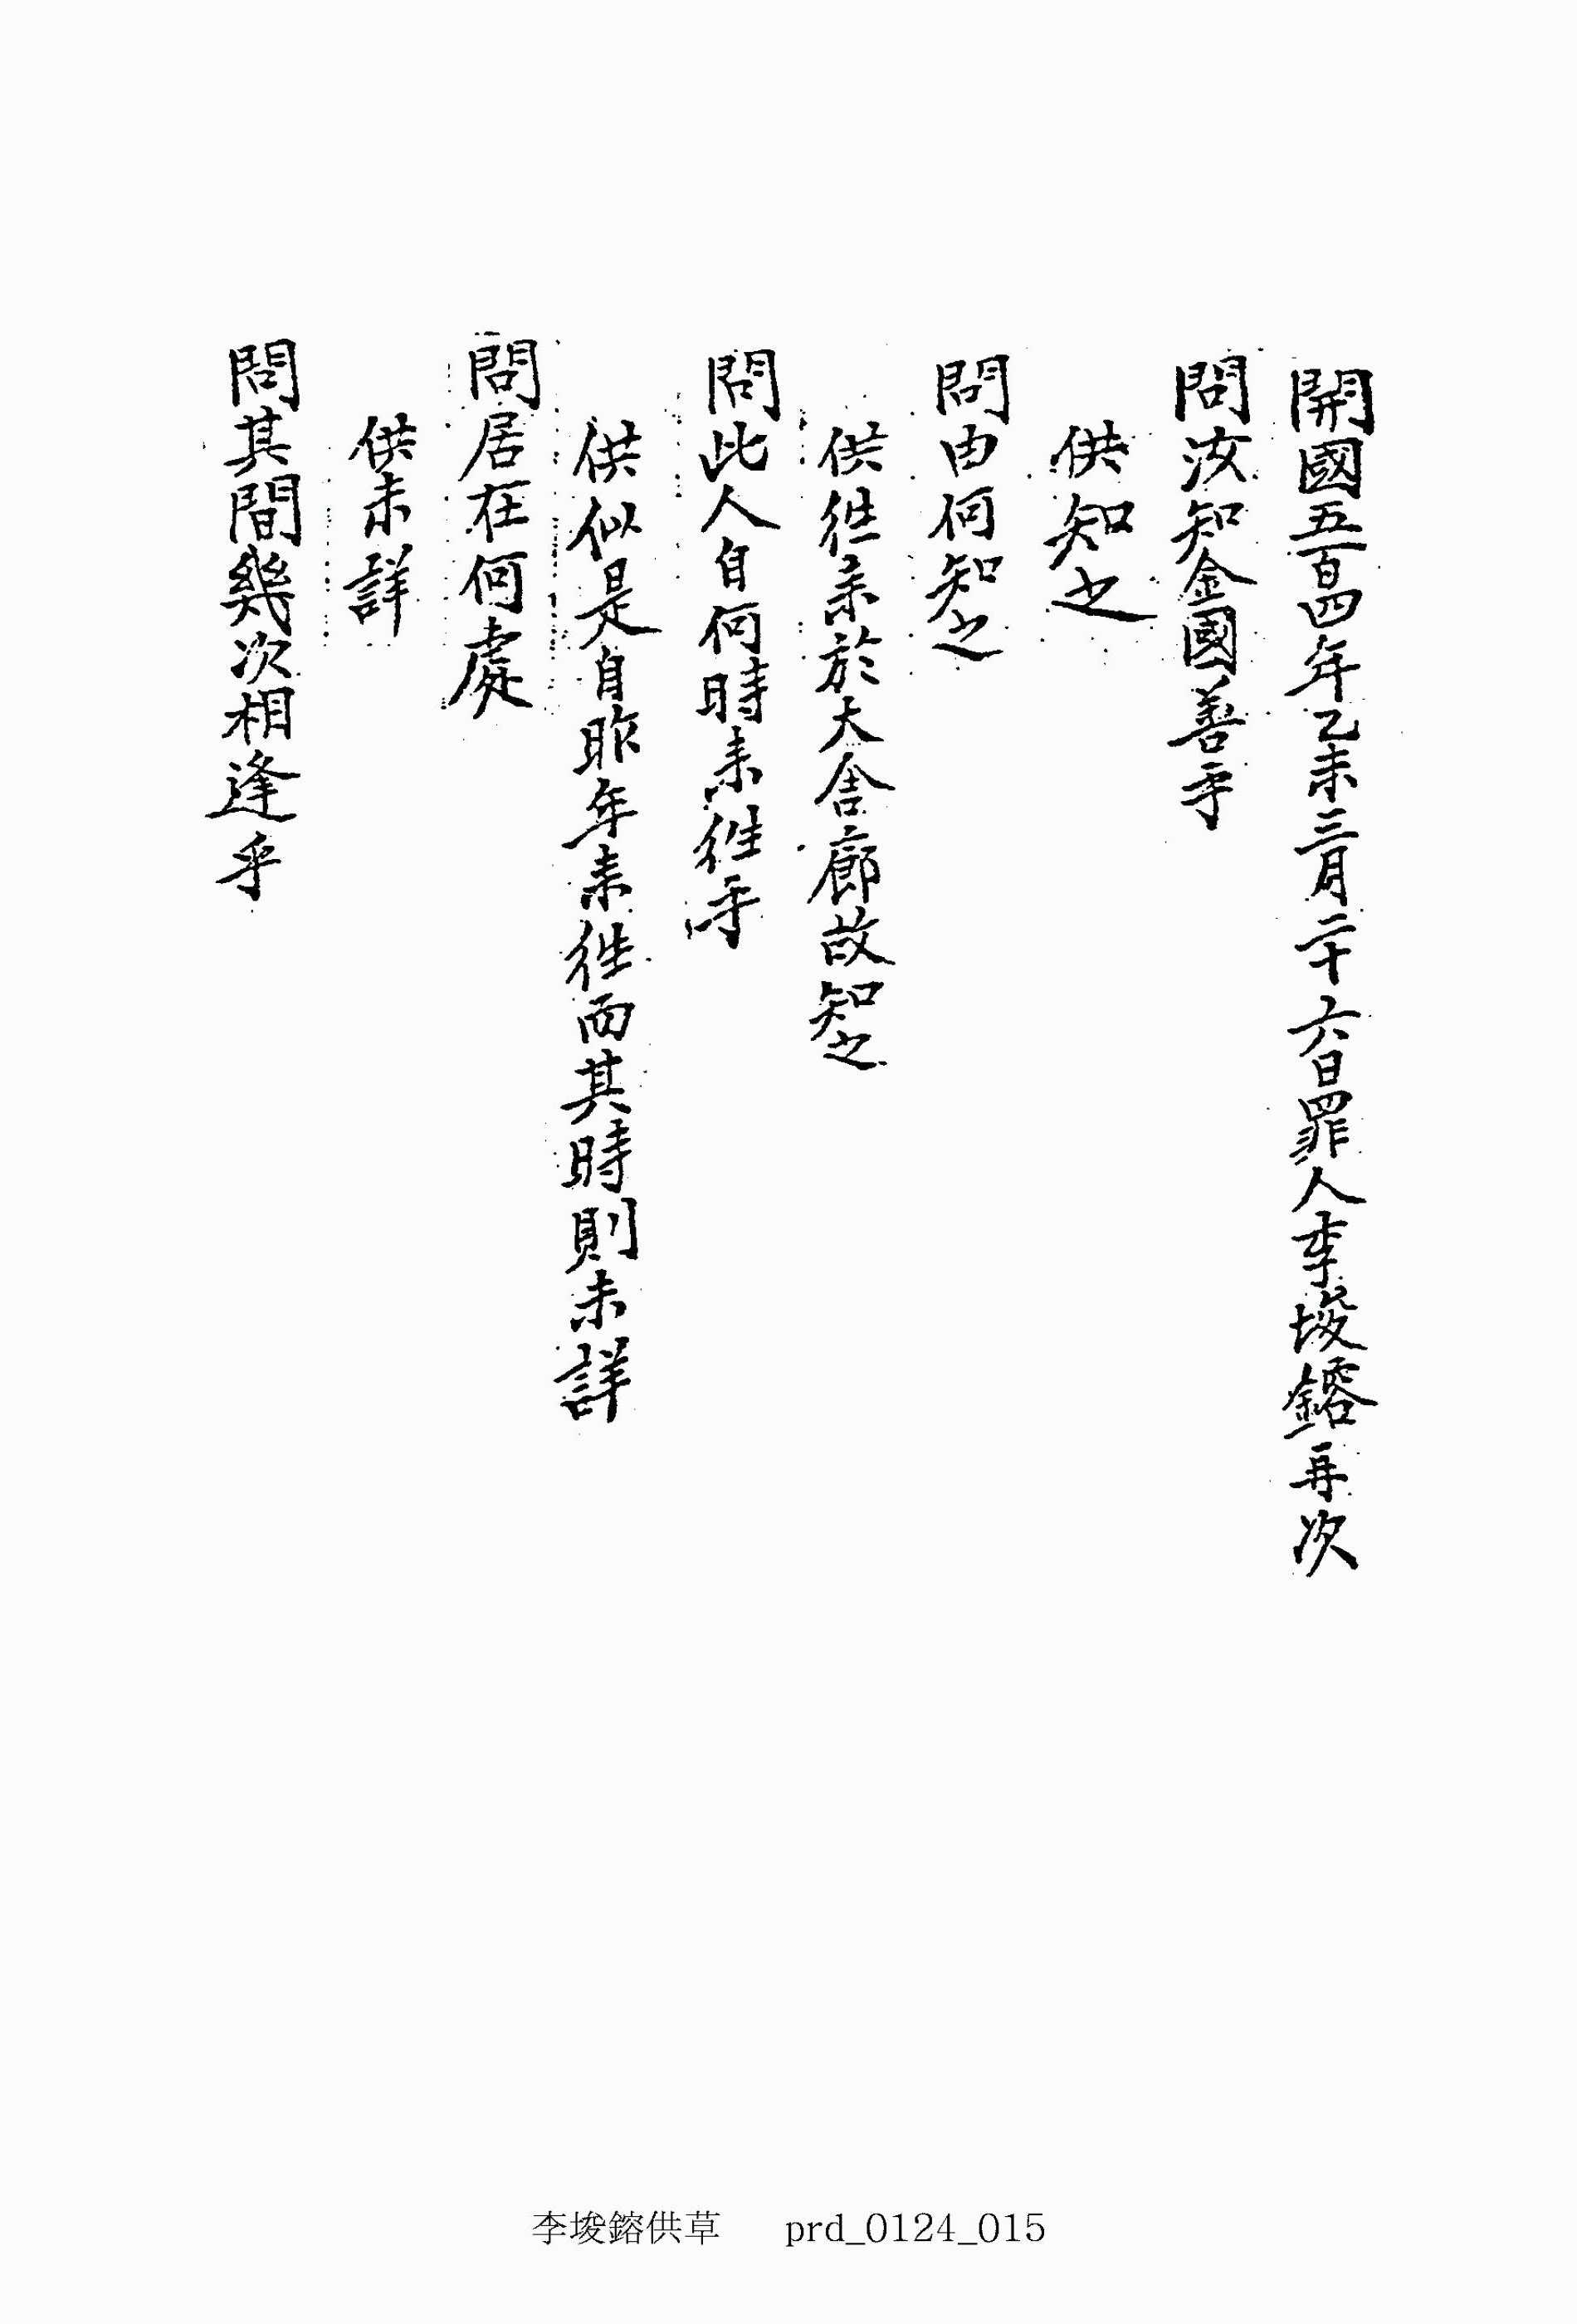 開國五百四年乙未三月二十六日罪人李埈鎔再次
問汝知金國善乎
供知之
問由何知之
供徃来於大舍廊故知之
問此人自何時来徃乎
供似是自昨年来徃而其時則未詳
問居在何處
供未詳
問其間幾次相逢乎
李埈鎔供草 prd_0124_015